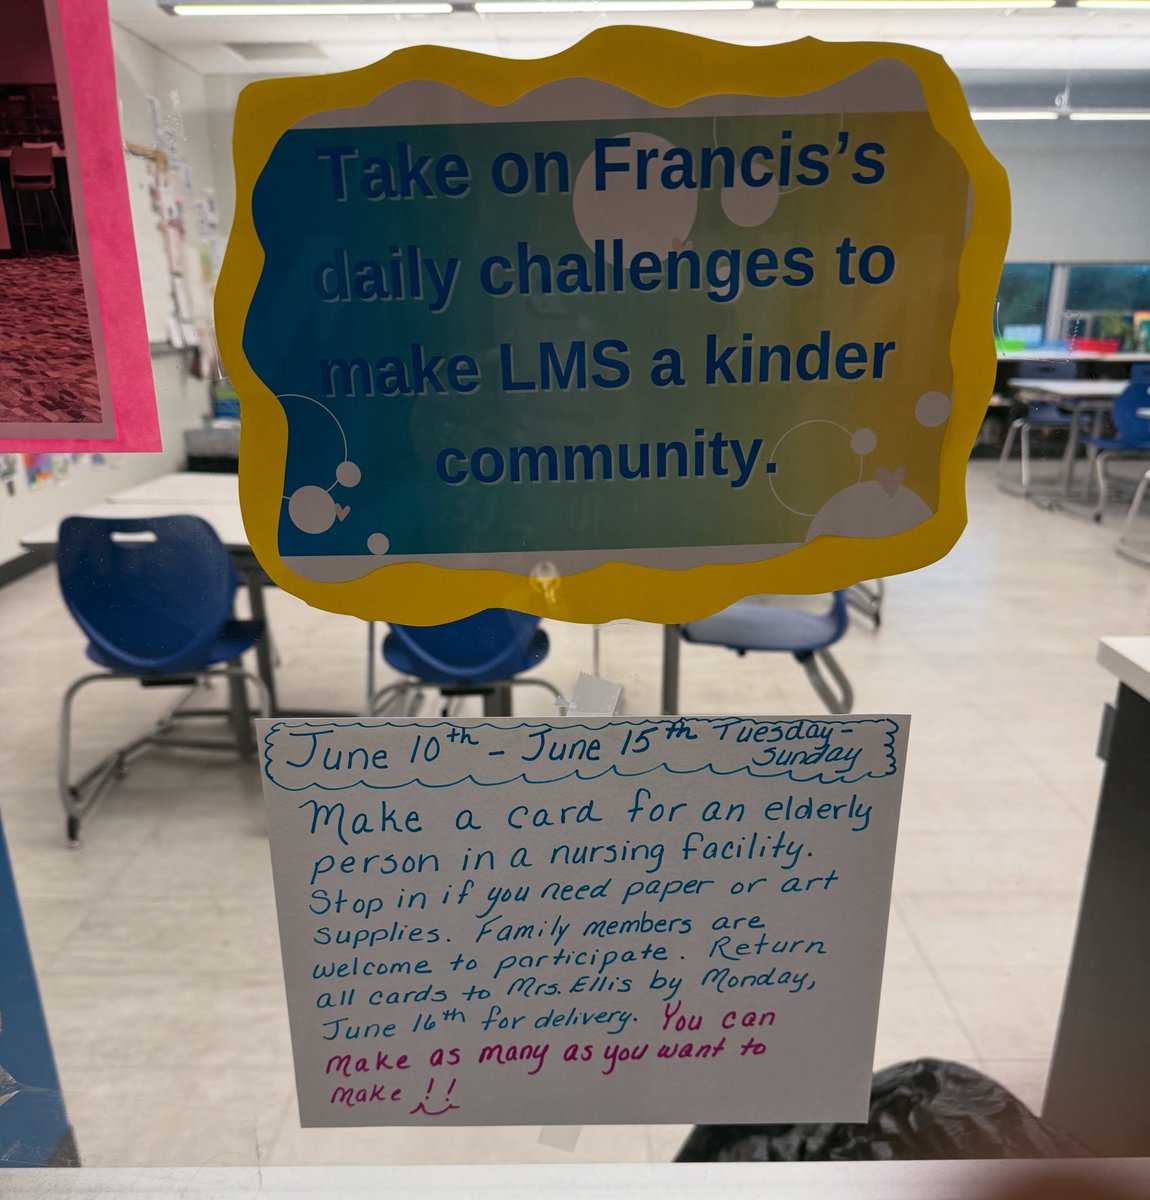 Take on Francis's
daily challenges to
make LMS a kinder
community.
June 10th - June 15th Tuesday-
Sunday
Make a card for an elderly
person in a nursing facility.
Stop in if you need paper or art
supplies. Family members are
welcome to participate. Return
all cards to Mrs. Ellis by Monday,
June 16th for delivery. You can
make as many as you want to
make!!